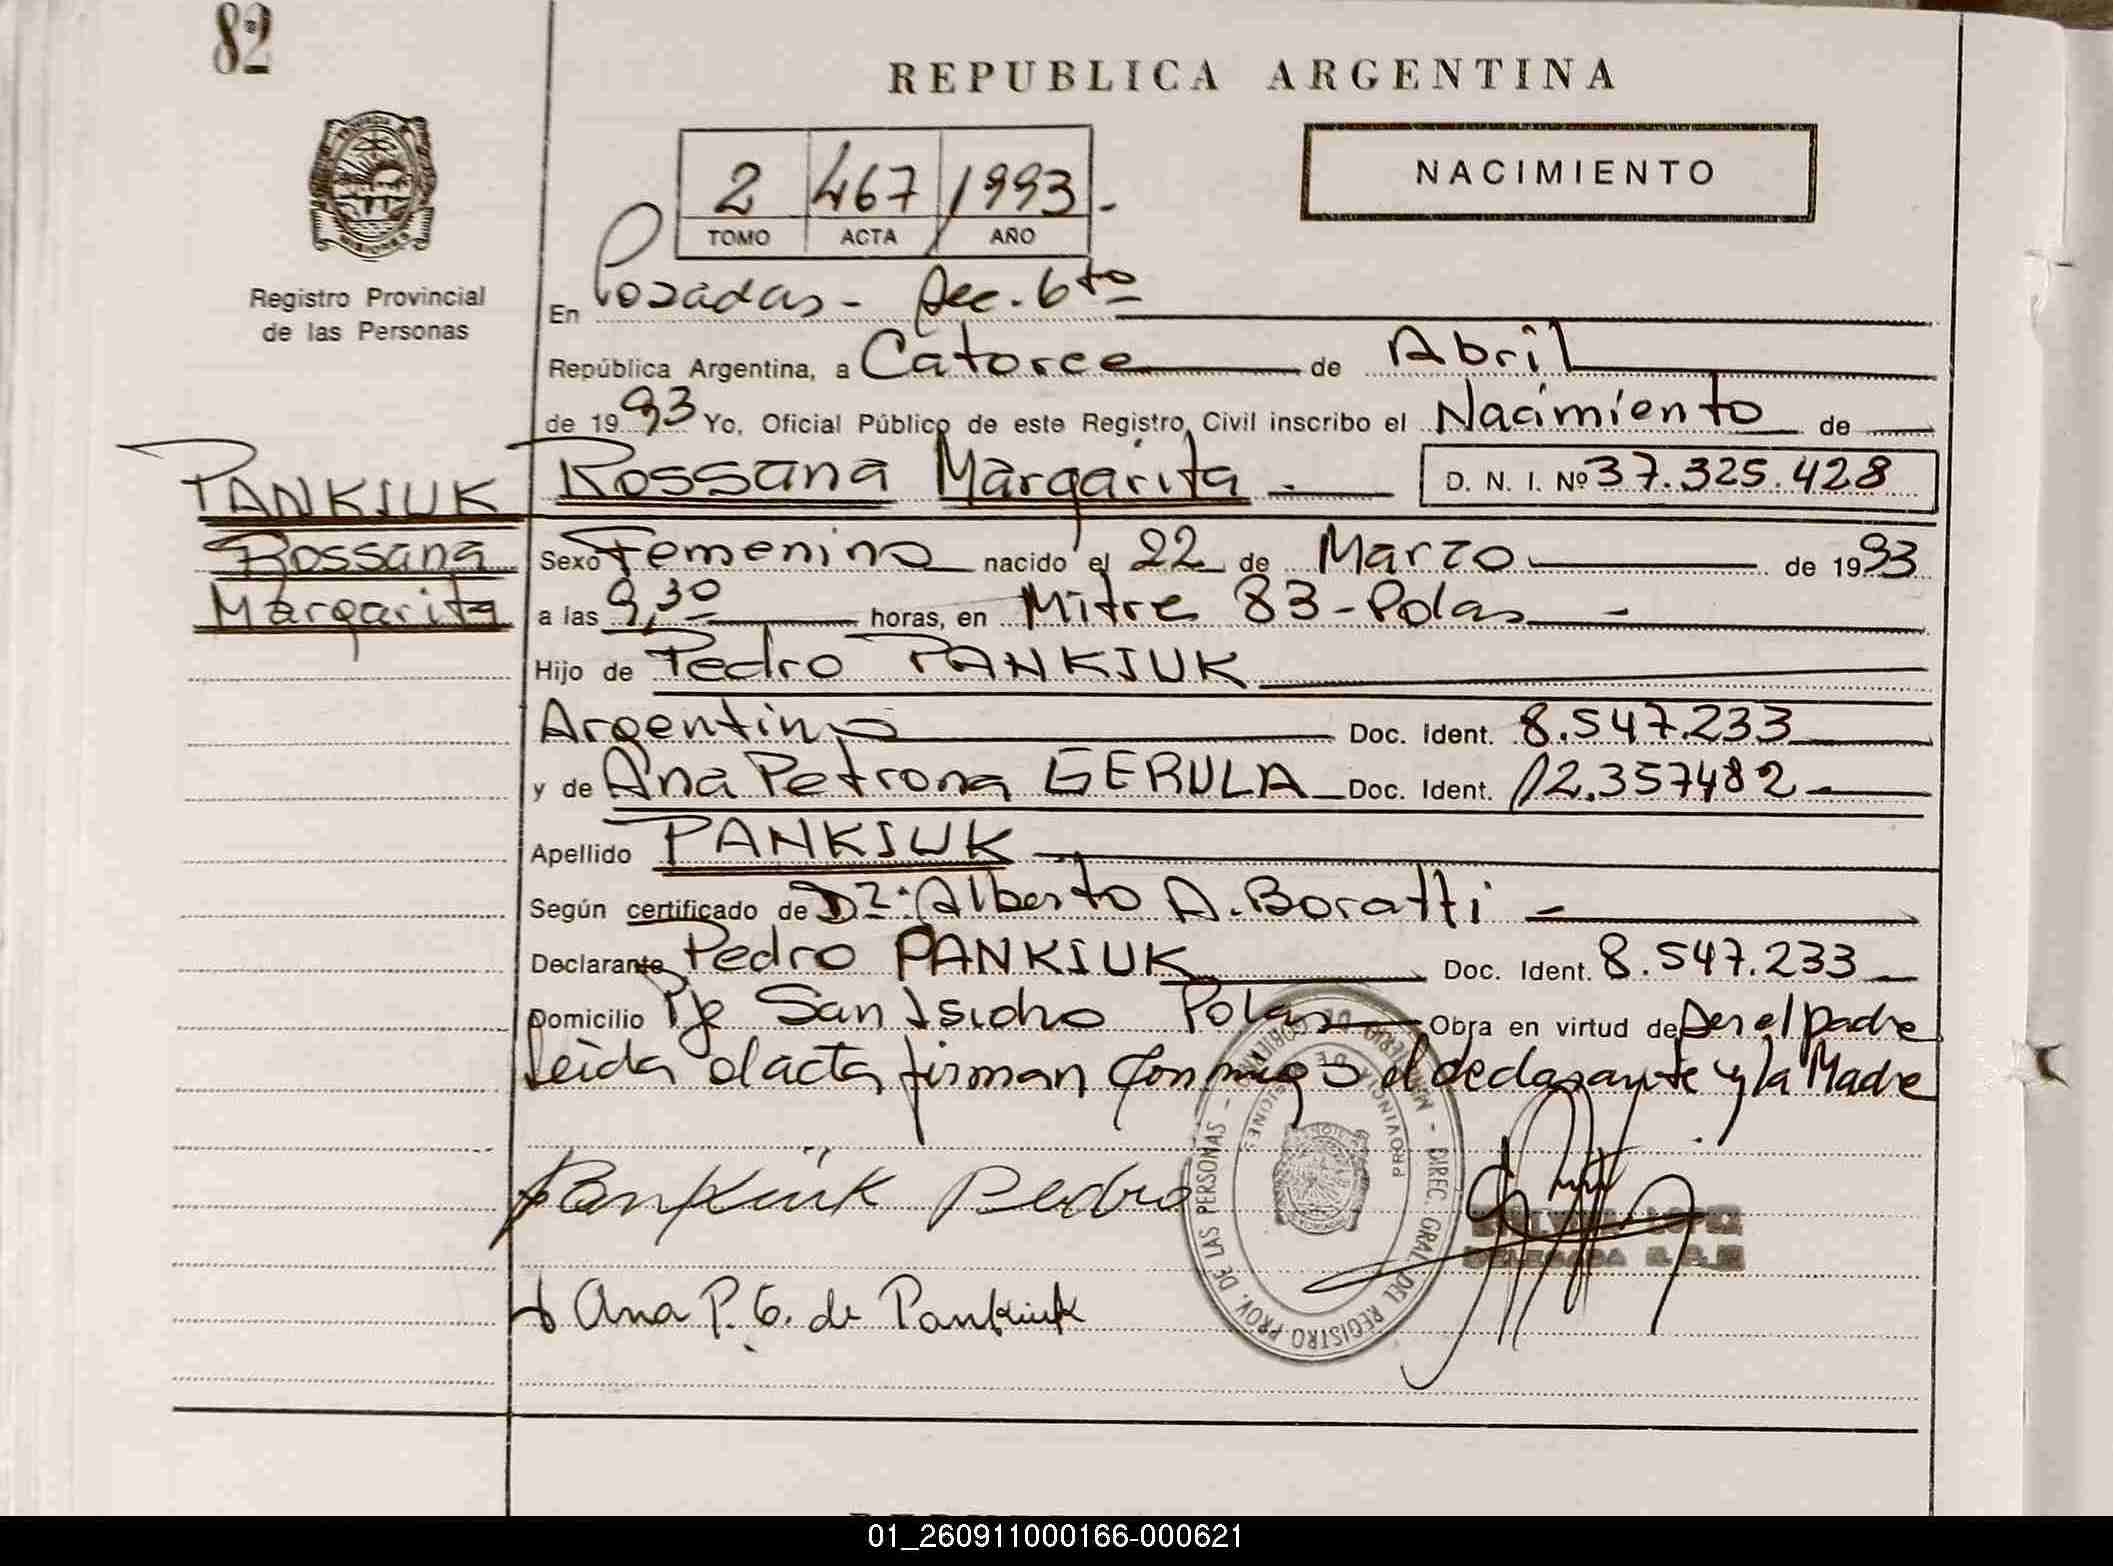 82
REPUBLICA ARGENTINA
NACIMIENTO
2 467 1993.-
TOMO ACTA AÑO
Registro Provincial
de las Personas
En Posadas - Sec. 6to
República Argentina, a Catorce de Abril
de 1993 Yo, Oficial Público de este Registro Civil inscribo el Nacimiento de
Rossana Margarita - D. N. I. Nº 37.325.428
PANKIUK
Rossana
Margarita
Sexo Femenino nacido el 22 de Marzo de 1993
a las 9,30 horas, en Mitre 83 - Pdas -
Hijo de Pedro PANKIUK
Argentino Doc. Ident. 8.547.233
y de Ana Petrona GERULA Doc. Ident. 12.357482 -
Apellido PANKIUK
Según certificado de Dr. Alberto A. Boratti -
Declarante Pedro PANKIUK Doc. Ident. 8.547.233
Domicilio Pje San Isidro Pdas Obra en virtud de Ser el padre
Leida el acta firman conmigo el declarante y la Madre
Pankiuk Pedro
Ana P. G. de Pankiuk
DIREC. GRAL. DEL REGISTRO PROV. DE LAS PERSONAS -
PROVINCIA DE MISIONES
LOPEZ
DELEGADA
01_260911000166-000621